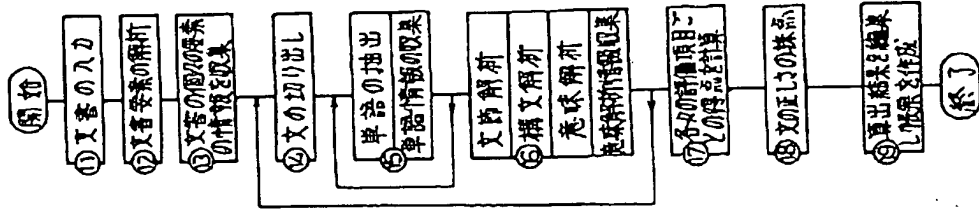 開始
⑪文書の入力
⑫文書要素の解析
⑬文書の個々の要素
の情報を収集
⑭文の切り出し
⑮単語の抽出
単語情報の収集
文節解析
⑯構文解析
意味解析
意味解析情報収集
⑰各々の評価項目ご
との得点を計算
⑱文の正しさの採点
⑲算出結果を編集
し帳票を作成
終了